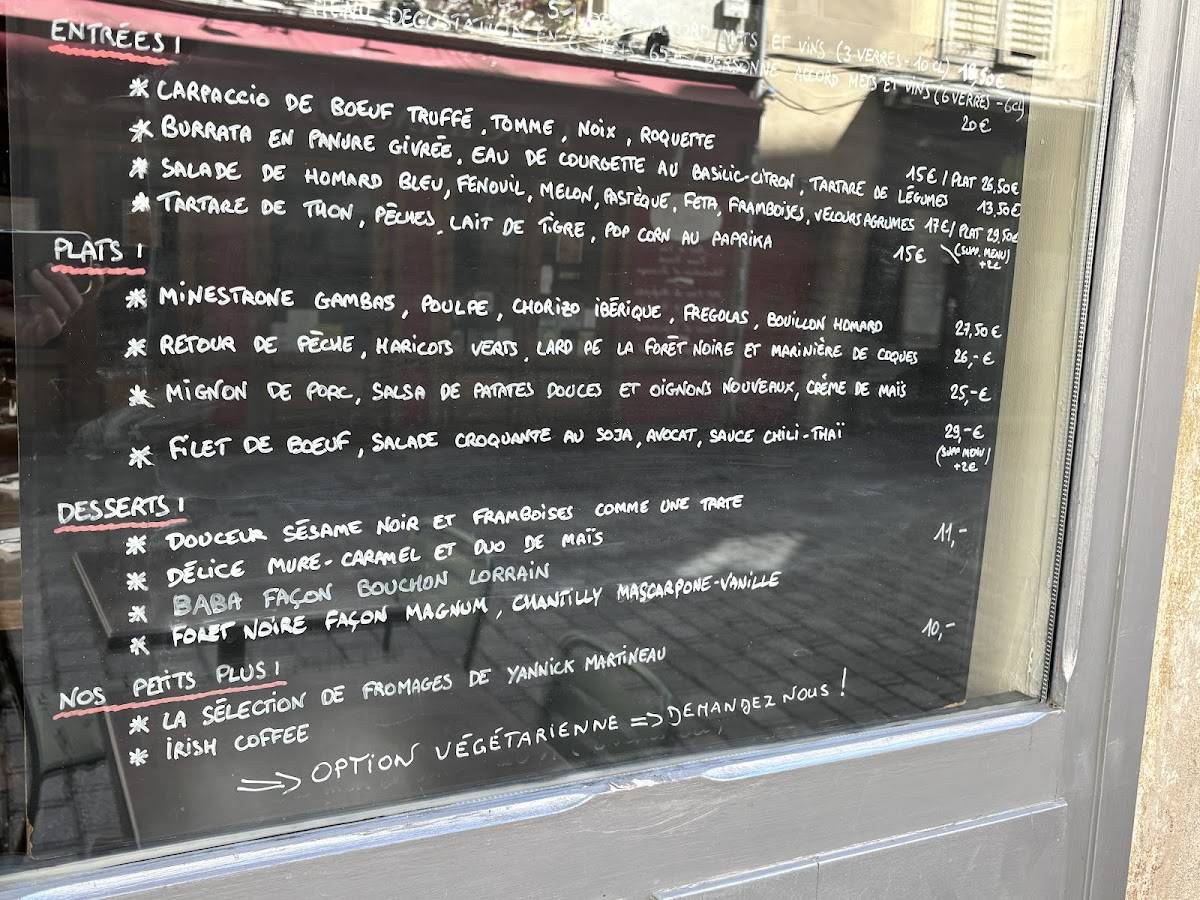 MENU DÉGUSTATION EN 5 ACCORD METS ET VINS (3 VERRES - 10 CL) 18,50€
65€ / PERSONNE ACCORD METS ET VINS (6 VERRES - 6 CL)
20€
ENTRÉES !
* CARPACCIO DE BOEUF TRUFFÉ, TOMME, NOIX, ROQUETTE 15€ / PLAT 26,50€
* BURRATA EN PANURE GIVRÉE, EAU DE COURGETTE AU BASILIC-CITRON, TARTARE DE LÉGUMES 13,50€
* SALADE DE HOMARD BLEU, FENOUIL, MELON, PASTÈQUE, FETA, FRAMBOISES, VELOURS AGRUMES 17€ / PLAT 29,50€
(SUPP. MENU)
+2€
* TARTARE DE THON, PÊCHES, LAIT DE TIGRE, POP CORN AU PAPRIKA 15€
PLATS !
* MINESTRONE GAMBAS, POULPE, CHORIZO IBÉRIQUE, FREGOLAS, BOUILLON HOMARD 27,50€
* RETOUR DE PÊCHE, HARICOTS VERTS, LARD DE LA FORÊT NOIRE ET MARINIÈRE DE COQUES 26,-€
* MIGNON DE PORC, SALSA DE PATATES DOUCES ET OIGNONS NOUVEAUX, CRÉME DE MAÏS 25,-€
* FILET DE BOEUF, SALADE CROQUANTE AU SOJA, AVOCAT, SAUCE CHILI-THAÏ 29,-€
(SUPP MENU)
+2€
DESSERTS !
* DOUCEUR SÉSAME NOIR ET FRAMBOISES COMME UNE TARTE
* DÉLICE MURE-CARAMEL ET DUO DE MAÏS 11,-
* BABA FAÇON BOUCHON LORRAIN
* FORET NOIRE FAÇON MAGNUM, CHANTILLY MASCARPONE-VANILLE
NOS PETITS PLUS !
* LA SÉLECTION DE FROMAGES DE YANNICK MARTINEAU 10,-
* IRISH COFFEE
=> OPTION VÉGÉTARIENNE => DEMANDEZ NOUS !